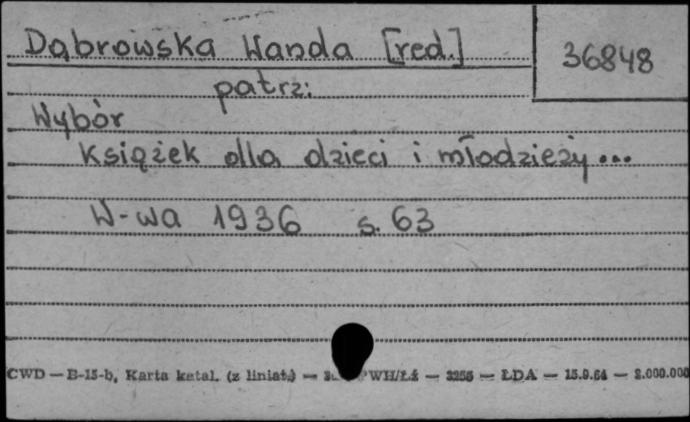 Dąbrowska Wanda [red.]
36848
patrz:
Wybór
Książek dla dzieci i młodzieży...
W-wa 1936 s. 63
CWD — B-15-b, Karta katal. (z liniat.) — PWH/Łź — 3255 — ŁDA — 15.9.64 — 2.000.000